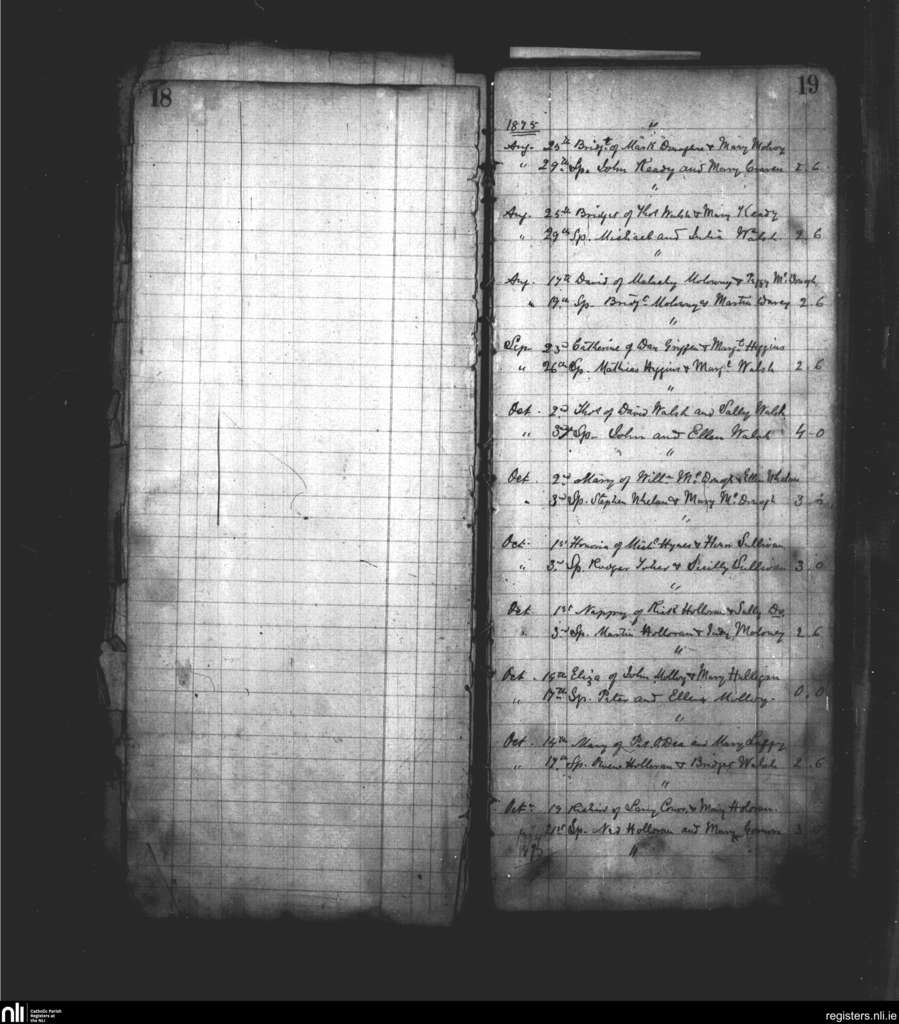 18
19
1875 "
Aug. 25th Bridgt of Mark & Mary Moloy
" 29th Sp. John Keady and Mary Craven 2 6
"
Aug. 25th Bridget of Thos Walsh & Mary Keady
" 29th Sp. Michael and Julia Walsh 2 6
"
Aug. 17th David of Malachy Molowny & Peggy McDough
" 19th Sp. Bridgt Molowny & Martin 2 6
"
Sep. 23rd Catherine of Dan Griffen & Margt Higgins
" 26th Sp. Mathias Higgins & Margt Walsh 2 6
"
Oct. 2nd Thos of David Walsh and Sally Walsh
" 3rd Sp. John and Ellen Walsh 4 0
"
Oct. 2nd Mary of Willm McDough & Ellen Whelan
" 3rd Sp. Stephen Whelan & Mary McDough 3
"
Oct. 1st Honoria of Michl Hynes & Sullivan
" 3rd Sp. Rodger & Sullivan 3 0
"
Oct 1st of Holloran & Sally Do
" 3rd Sp. Martin Holloran & Judy Moloney 2 6
"
Oct. Eliza of John Molloy & Mary Halligan
" 17th Sp. Peter and Ellen Molloy. 0 0
"
Oct. 14th Mary of Pat O.Dea and Mary
" 17th Sp. Holloran & Bridget Walsh 2 6
"
Oct. of & Mary Holoran.
21st Sp. Ned Holloran and Mary 3
"
nli
Catholic Parish
Registers at
the NLI
registers.nli.ie